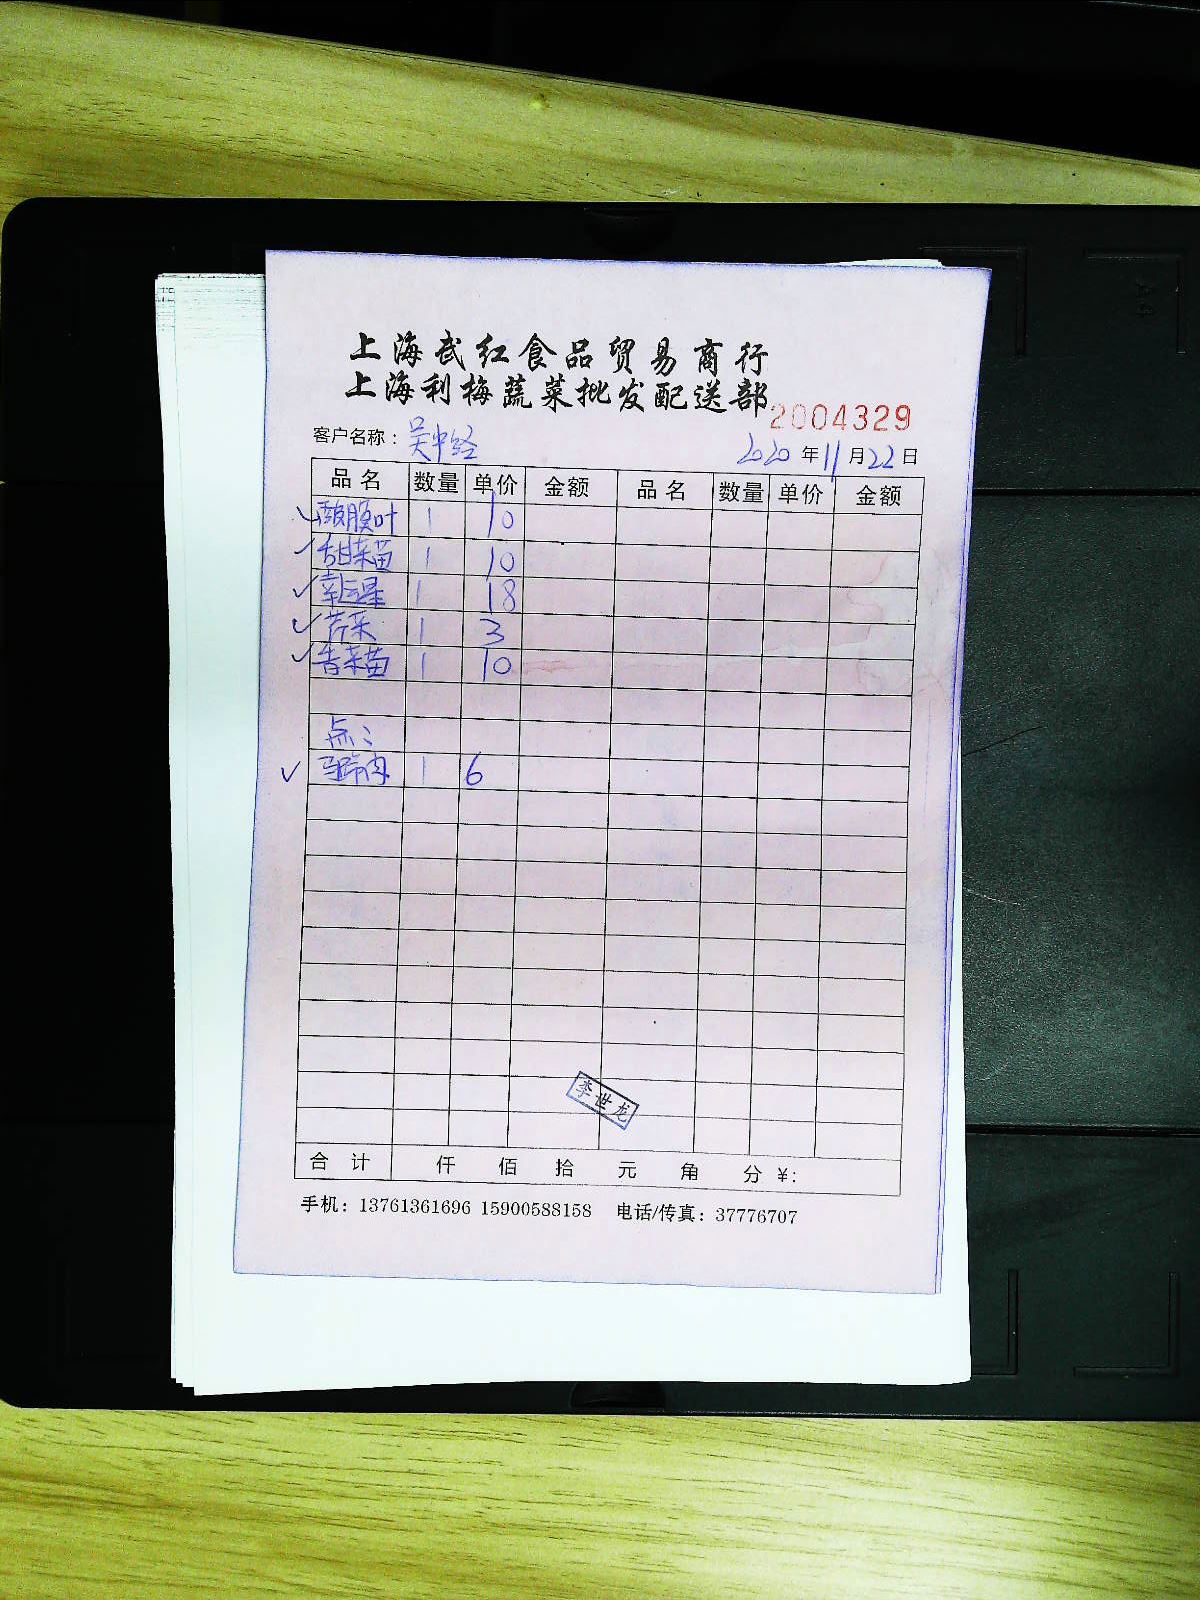 上海武红食品贸易商行
上海利梅蔬菜批发配送部
2004329
客户名称：吴中路 2020年11月22日
品名 数量 单价 金额 品名 数量 单价 金额
✓ 酸膜叶 1 10
✓ 甜菜苗 1 10
✓ 幸运星 1 18
✓ 芹菜 1 3
✓ 香菜苗 1 10
点：
✓ 马蹄肉 1 6
李世龙
合计 仟 佰 拾 元 角 分 ¥:
手机：13761361696 15900588158 电话/传真：37776707